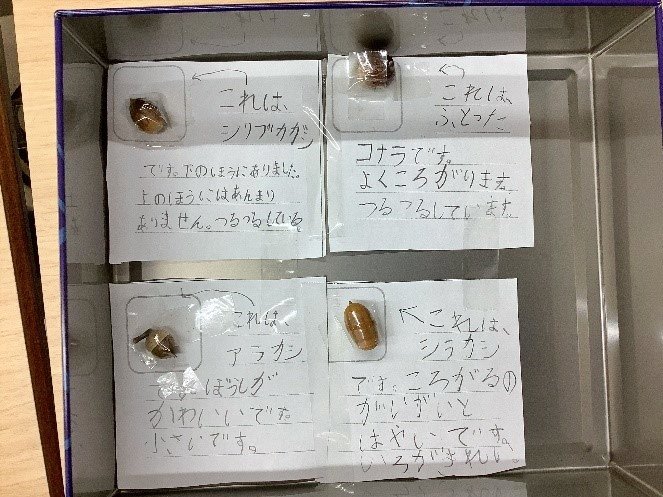 これは、
シリブカガシ
です。下のほうにありました。
上のほうにはあんまり
ありません。つるつるしている。
これは、
ふとった
コナラです。
よくころがります。
つるつるしています。
これは、
アラカシ
です。ぼうしが
かわいいです。
小さいです。
これは、
シラカシ
です。ころがるの
がいがいと
はやいです。
いろがきれい。